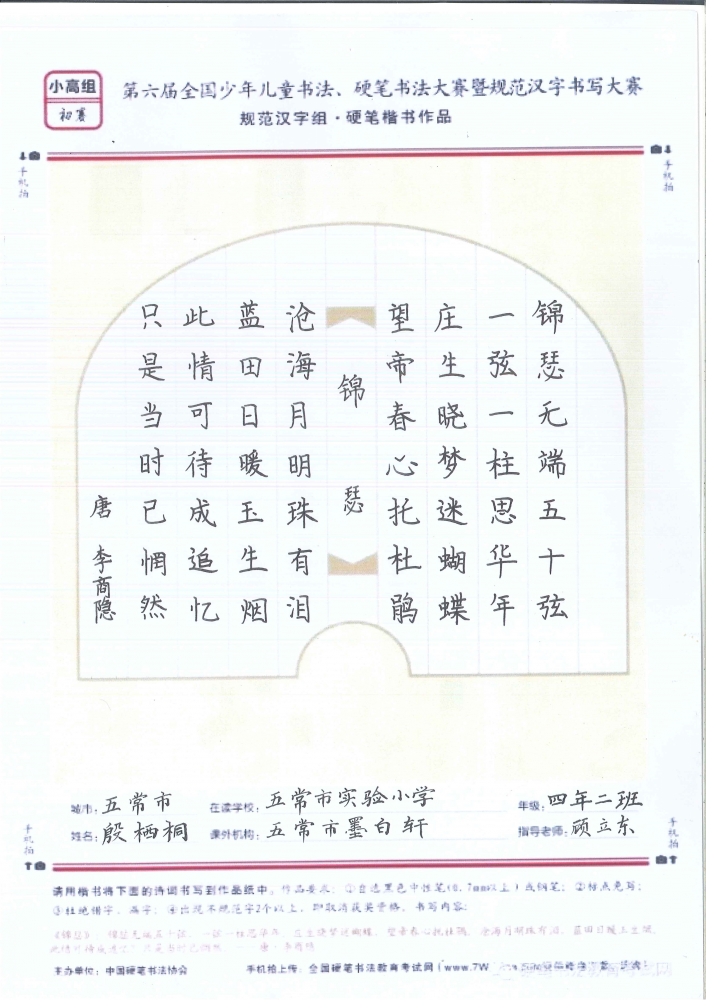 小高组
初赛
第六届全国少年儿童书法、硬笔书法大赛暨规范汉字书写大赛
规范汉字组·硬笔楷书作品
手机拍
手机拍
锦瑟无端五十弦
一弦一柱思华年
庄生晓梦迷蝴蝶
望帝春心托杜鹃
锦瑟
沧海月明珠有泪
蓝田日暖玉生烟
此情可待成追忆
只是当时已惘然
唐李商隐
城市：五常市
在读学校：五常市实验小学
年级：四年二班
姓名：殷栖桐
课外机构：五常市墨白轩
指导老师：顾立东
手机拍
手机拍
请用楷书将下面的诗词书写到作品纸中。作品要求：①自选黑色中性笔(0.7mm以上)或钢笔；②标点免写；
③杜绝错字、漏字；④出现不规范字2个以上，即取消获奖资格。书写内容：
《锦瑟》：锦瑟无端五十弦，一弦一柱思华年。庄生晓梦迷蝴蝶，望帝春心托杜鹃。沧海月明珠有泪，蓝田日暖玉生烟。
此情可待成追忆？只是当时已惘然。——唐·李商隐
主办单位：中国硬笔书法协会
手机拍上传：全国硬笔书法教育考试网(www.7W